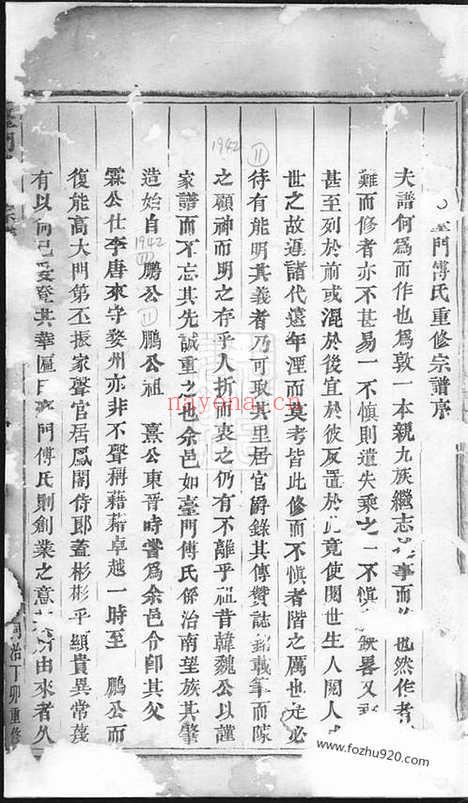 門傅氏重修宗譜序
夫譜何為而作也為敦一本親九族繼志事而也然作者
難而修者亦不甚易一不慎則遺失乘之一不慎畧又
甚至列於前或混於後宜於彼反置於竟使閱世生人閱人
世之故遑諸代遠年湮而莫考皆此修而不慎者階之厲也必
待有能明其義者乃可取其里居官爵錄其傳贊誌銘載筆而隙
之顧神而明之存乎人折而衷之仍有不離乎祖昔韓魏公以謹
家譜而不忘其先誠重之也余邑如臺門傅氏係治南望族其肇
造始自鵬公鵬公祖熹公東晉時嘗為余邑令卽其父
霖公仕李唐來守婺州亦非不聲稱藉藉卓越一時至鵬公而
復能高大門第丕振家聲官居鳳閣侍郎蓋彬彬乎顯貴異常茂
有以尚已爰登其華區臺門傅氏則創業之意由來者久
同治丁卯重修
1942
11
1942
11
11
nayona.cn
www.fozhu920.com